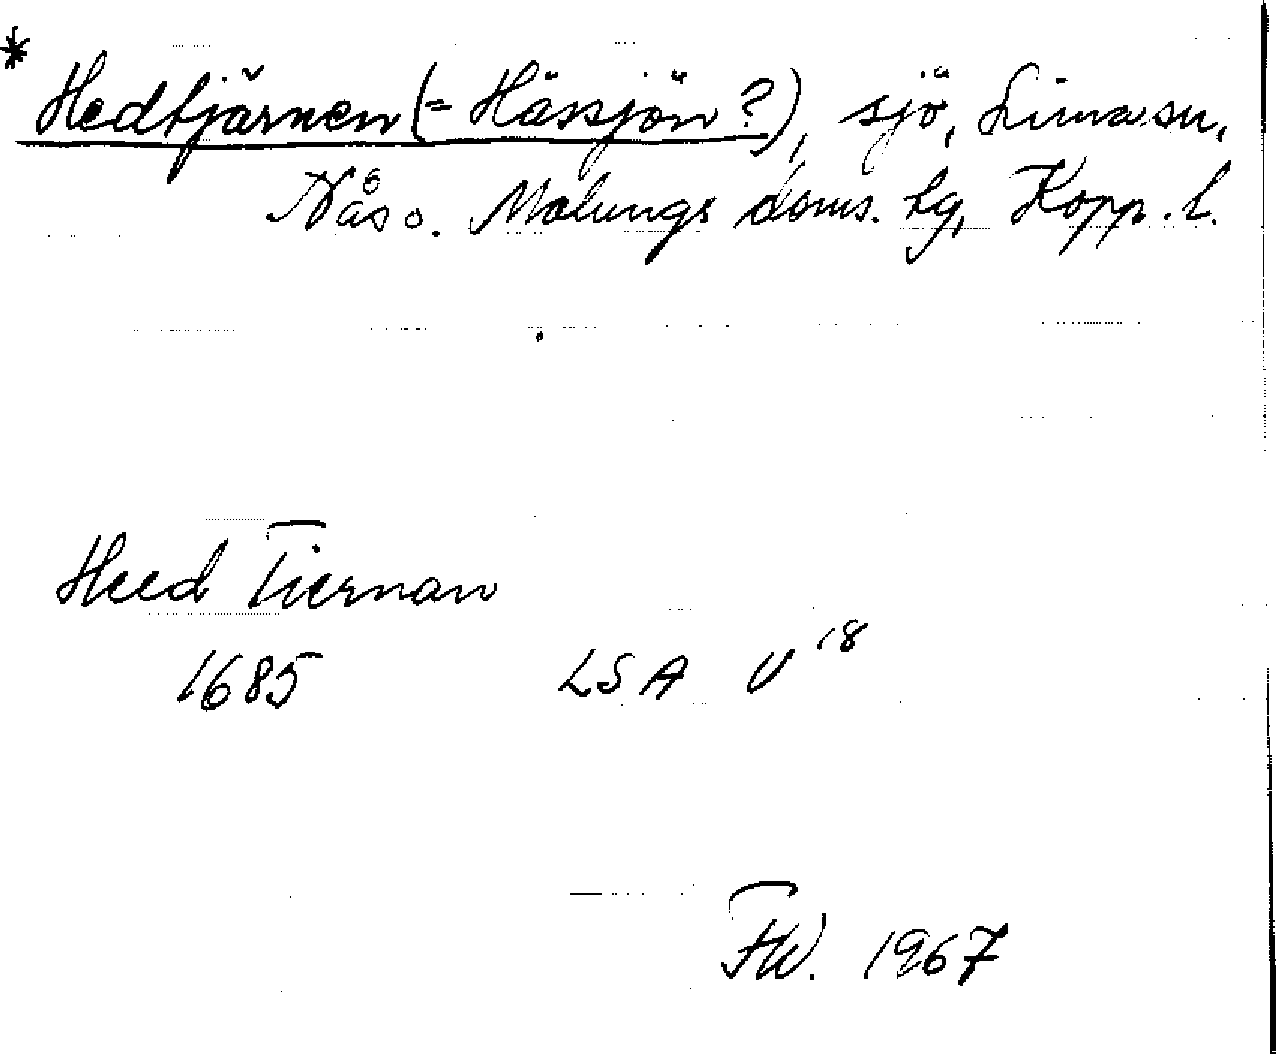 * Hedtjärnen (= Hässjön?), sjö, Lima sn,
Nås o. Malungs doms. tg, Kopp. l.
Heed Tiernan
1685 LSA U 18
F.W. 1967